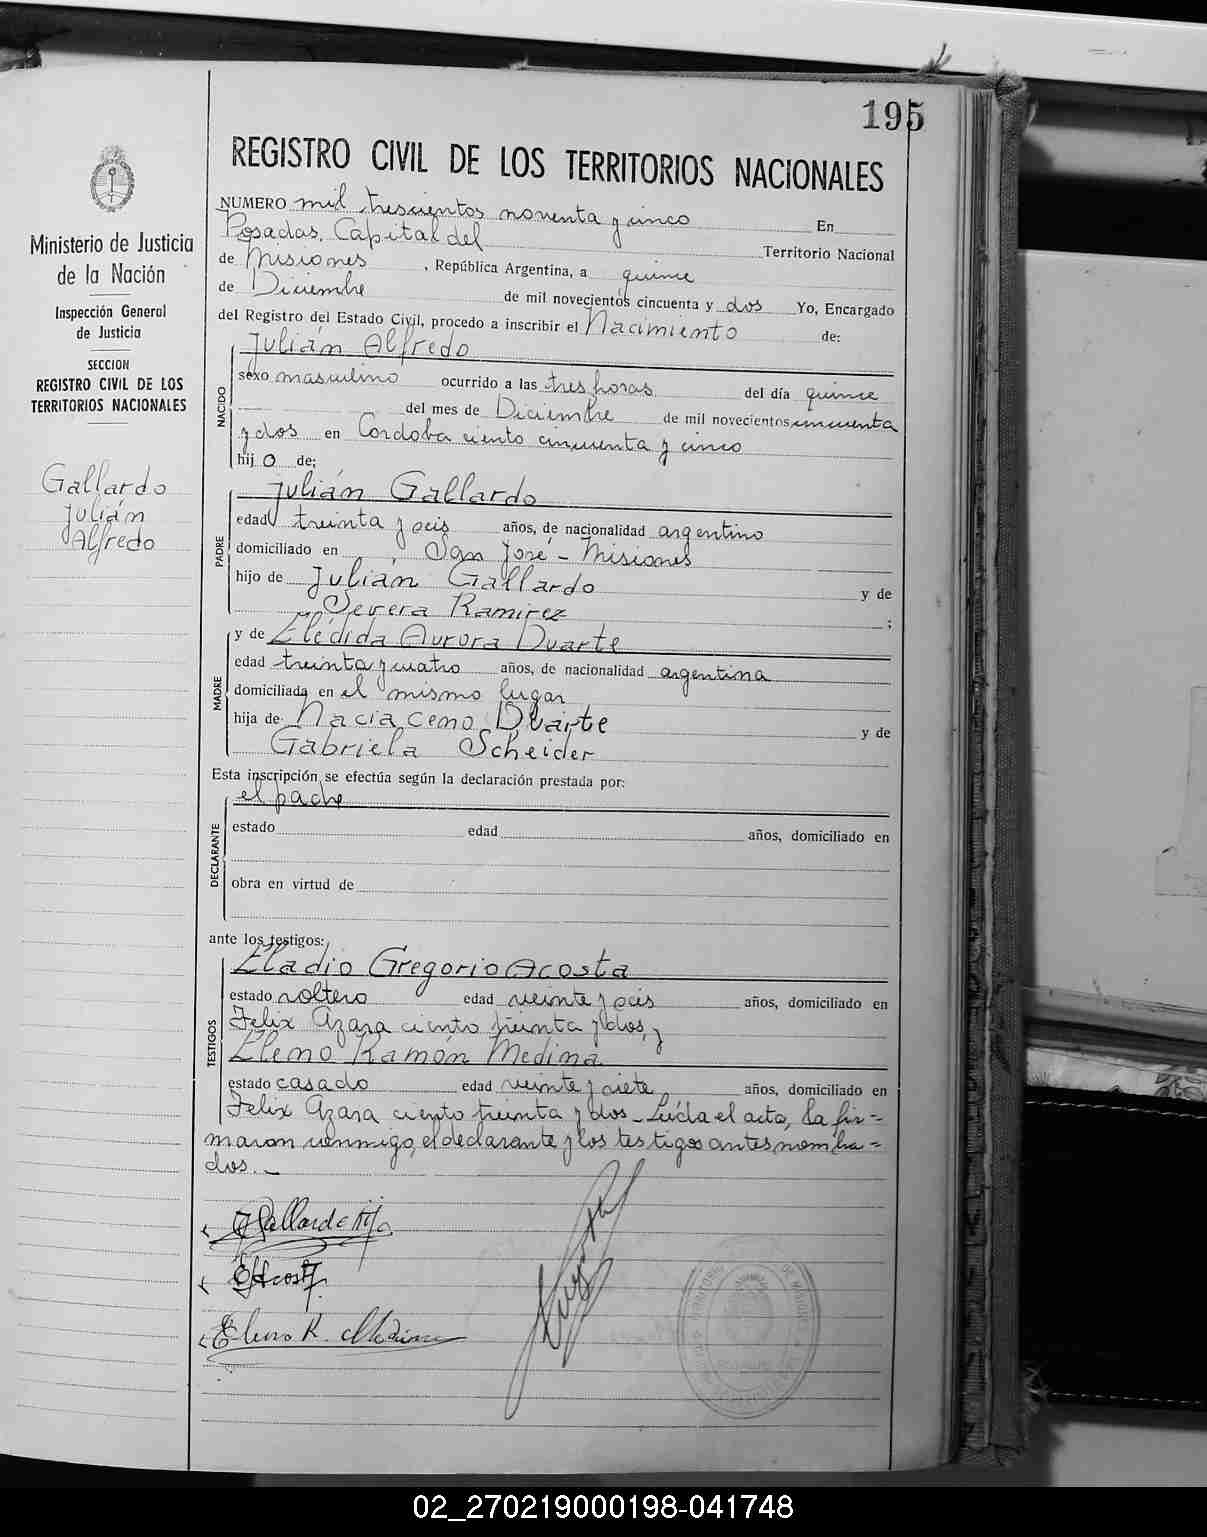 195
REGISTRO CIVIL DE LOS TERRITORIOS NACIONALES
Ministerio de Justicia
de la Nación
Inspección General
de Justicia
SECCION
REGISTRO CIVIL DE LOS
TERRITORIOS NACIONALES
Gallardo
Julián
Alfredo
NUMERO mil trescientos noventa y cinco En
Posadas. Capital del Territorio Nacional
de Misiones, República Argentina, a quince
de Diciembre de mil novecientos cincuenta y dos Yo, Encargado
del Registro del Estado Civil, procedo a inscribir el Nacimiento de:
Julián Alfredo
NACIDO
sexo masculino ocurrido a las tres horas del día quince
del mes de Diciembre de mil novecientos cincuenta
y dos en Cordoba ciento cincuenta y cinco
hijo de:
Julián Gallardo
PADRE
edad treinta y seis años, de nacionalidad argentino
domiciliado en San José - Misiones
hijo de Julián Gallardo y de
Severa Ramirez ;
y de Elédida Aurora Duarte
MADRE
edad treinta y cuatro años, de nacionalidad argentina
domiciliada en el mismo lugar
hija de Nacia ceno Duarte y de
Gabriela Scheider
Esta inscripción se efectúa según la declaración prestada por:
el padre
DECLARANTE
estado edad años, domiciliado en
obra en virtud de
ante los testigos:
Eladio Gregorio Acosta
TESTIGOS
estado soltero edad veinte y seis años, domiciliado en
Felix Azara ciento treinta y dos, y
Eleno Ramón Medina
estado casado edad veinte y siete años, domiciliado en
Felix Azara ciento treinta y dos - Leída el acta, la fir=
maron conmigo, el declarante y los testigos antes nombra=
dos. -
J Gallardo hijo
E G Acosta
Eleno R. Medina
02_270219000198-041748